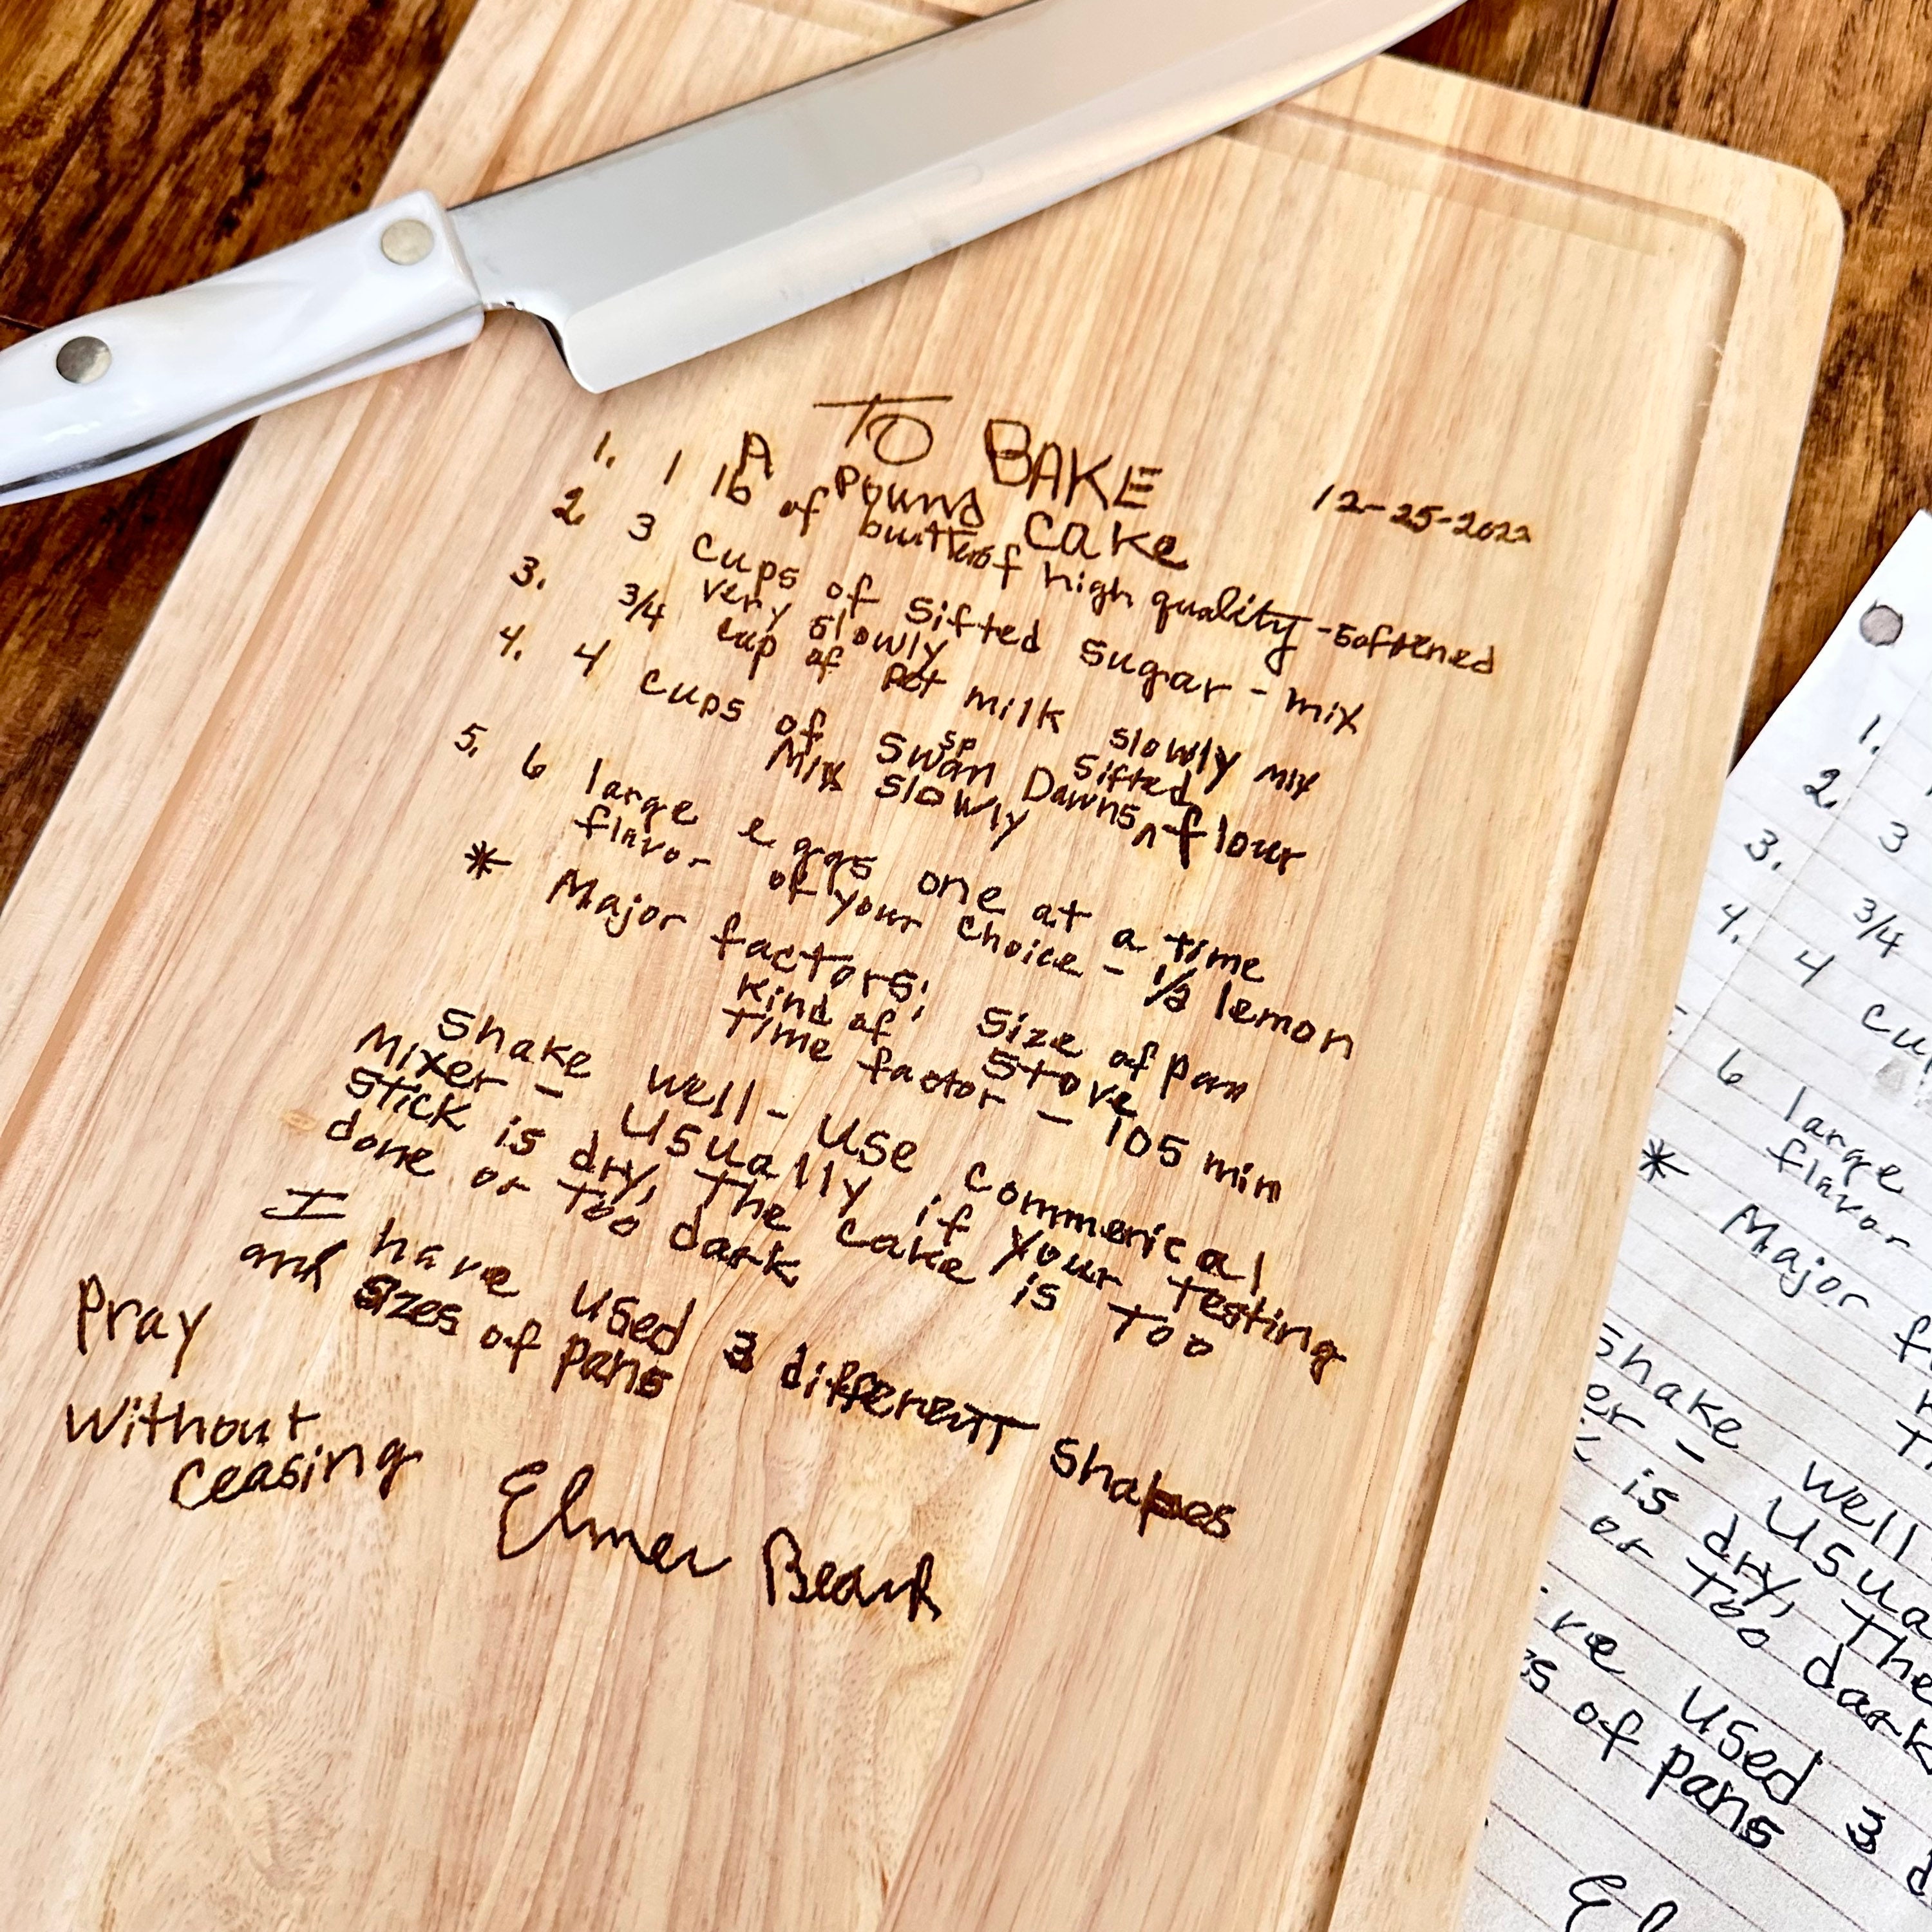 TO BAKE
A Pound Cake
12-25-2022
1. 1 lb of butter of high quality - softened
2. 3 cups of sifted sugar - mix
very slowly
3. 3/4 cup of Pet milk slowly mix
4. 4 cups of Swan Dawns ^ flour
sp
sifted
Mix slowly
5. 6 large eggs one at a time
flavor of your choice - 1/2 lemon
* Major factors: Size of pan
Kind of stove
Time factor - 105 min
Shake well - use commerical
Mixer - Usually if your testing
stick is dry, the cake is too
done or too dark
I have used 3 different shapes
and sizes of pans
Pray
without
ceasing
Elmer Beard
1.
2. 3
3. 3/4
4. 4 cu
6 large
flavor
* Major f
Shake well
er - Usua
is dry, the
or too dark
ve used 3 d
es of pans
El